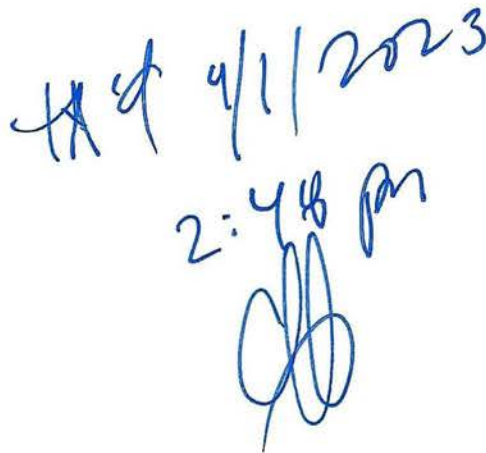 4/1/2023
2:48 pm